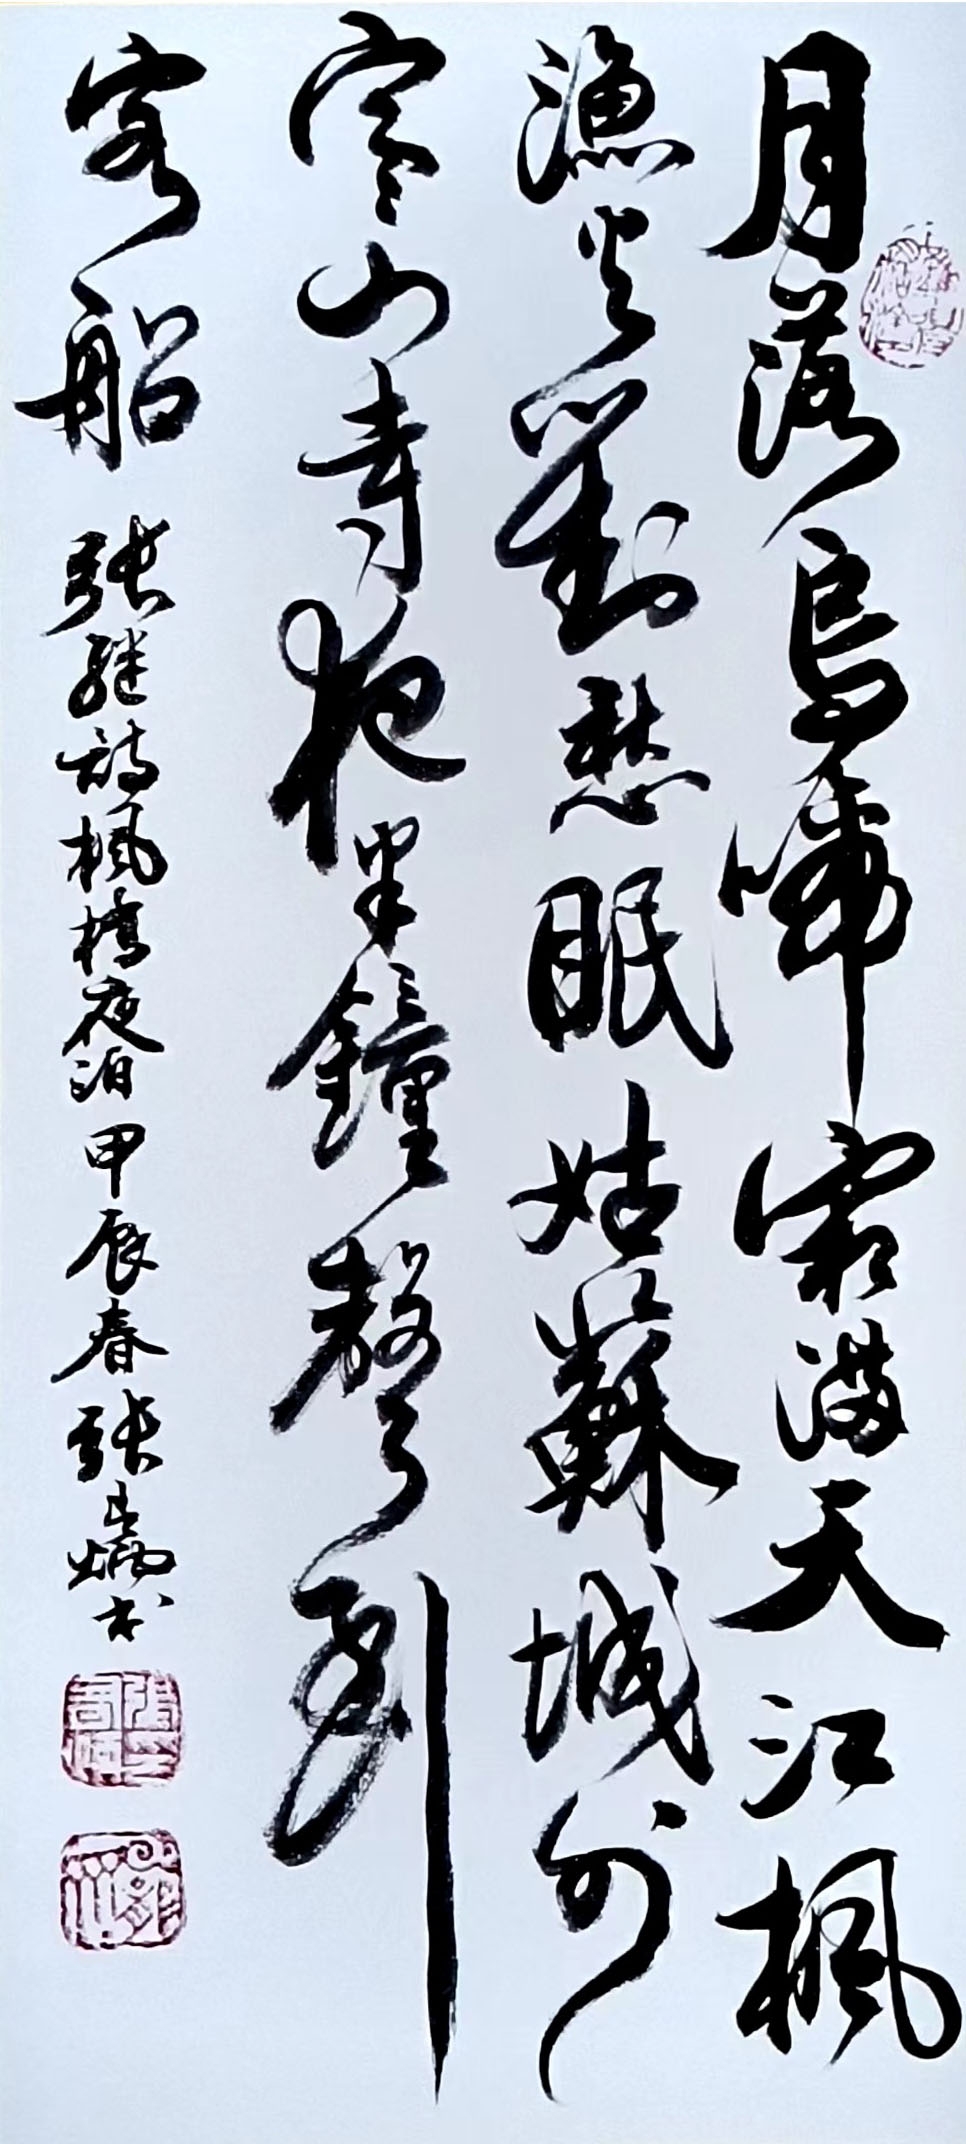 月落烏啼霜滿天江楓
漁火對愁眠姑蘇城外
寒山寺夜半鐘聲到
客船
張繼詩楓橋夜泊甲辰春張